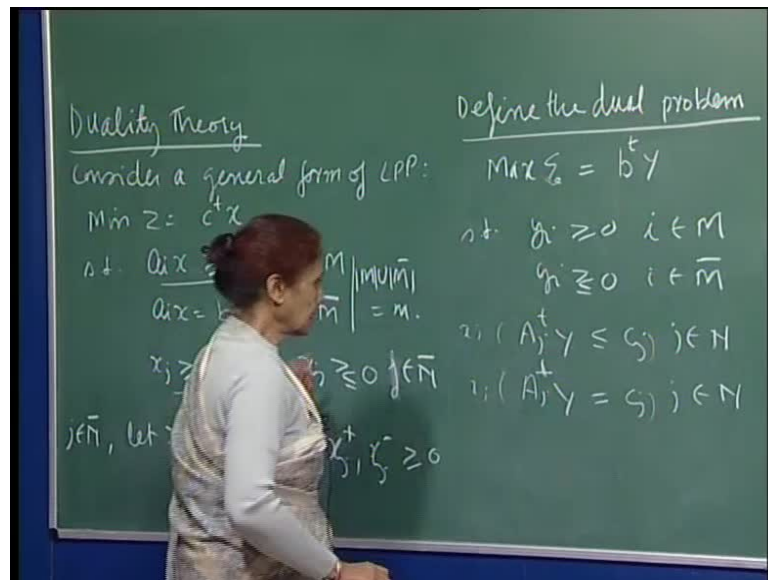 Duality Theory
Consider a general form of LPP:
Min Z = cᵗx
s.t. aᵢx M
aᵢx = b M̄ | |M|∪|M̄| = m.
xⱼ ≥ ≷ 0 j ∈ N̄
j ∈ N̄, let xⱼ⁺, xⱼ⁻ ≥ 0
Define the dual problem
Max ξ = bᵗy
s.t. yᵢ ≥ 0 i ∈ M
yᵢ ≷ 0 i ∈ M̄
xⱼ ( Aⱼᵗ y ≤ cⱼ) j ∈ N
xⱼ ( Aⱼᵗ y = cⱼ) j ∈ N